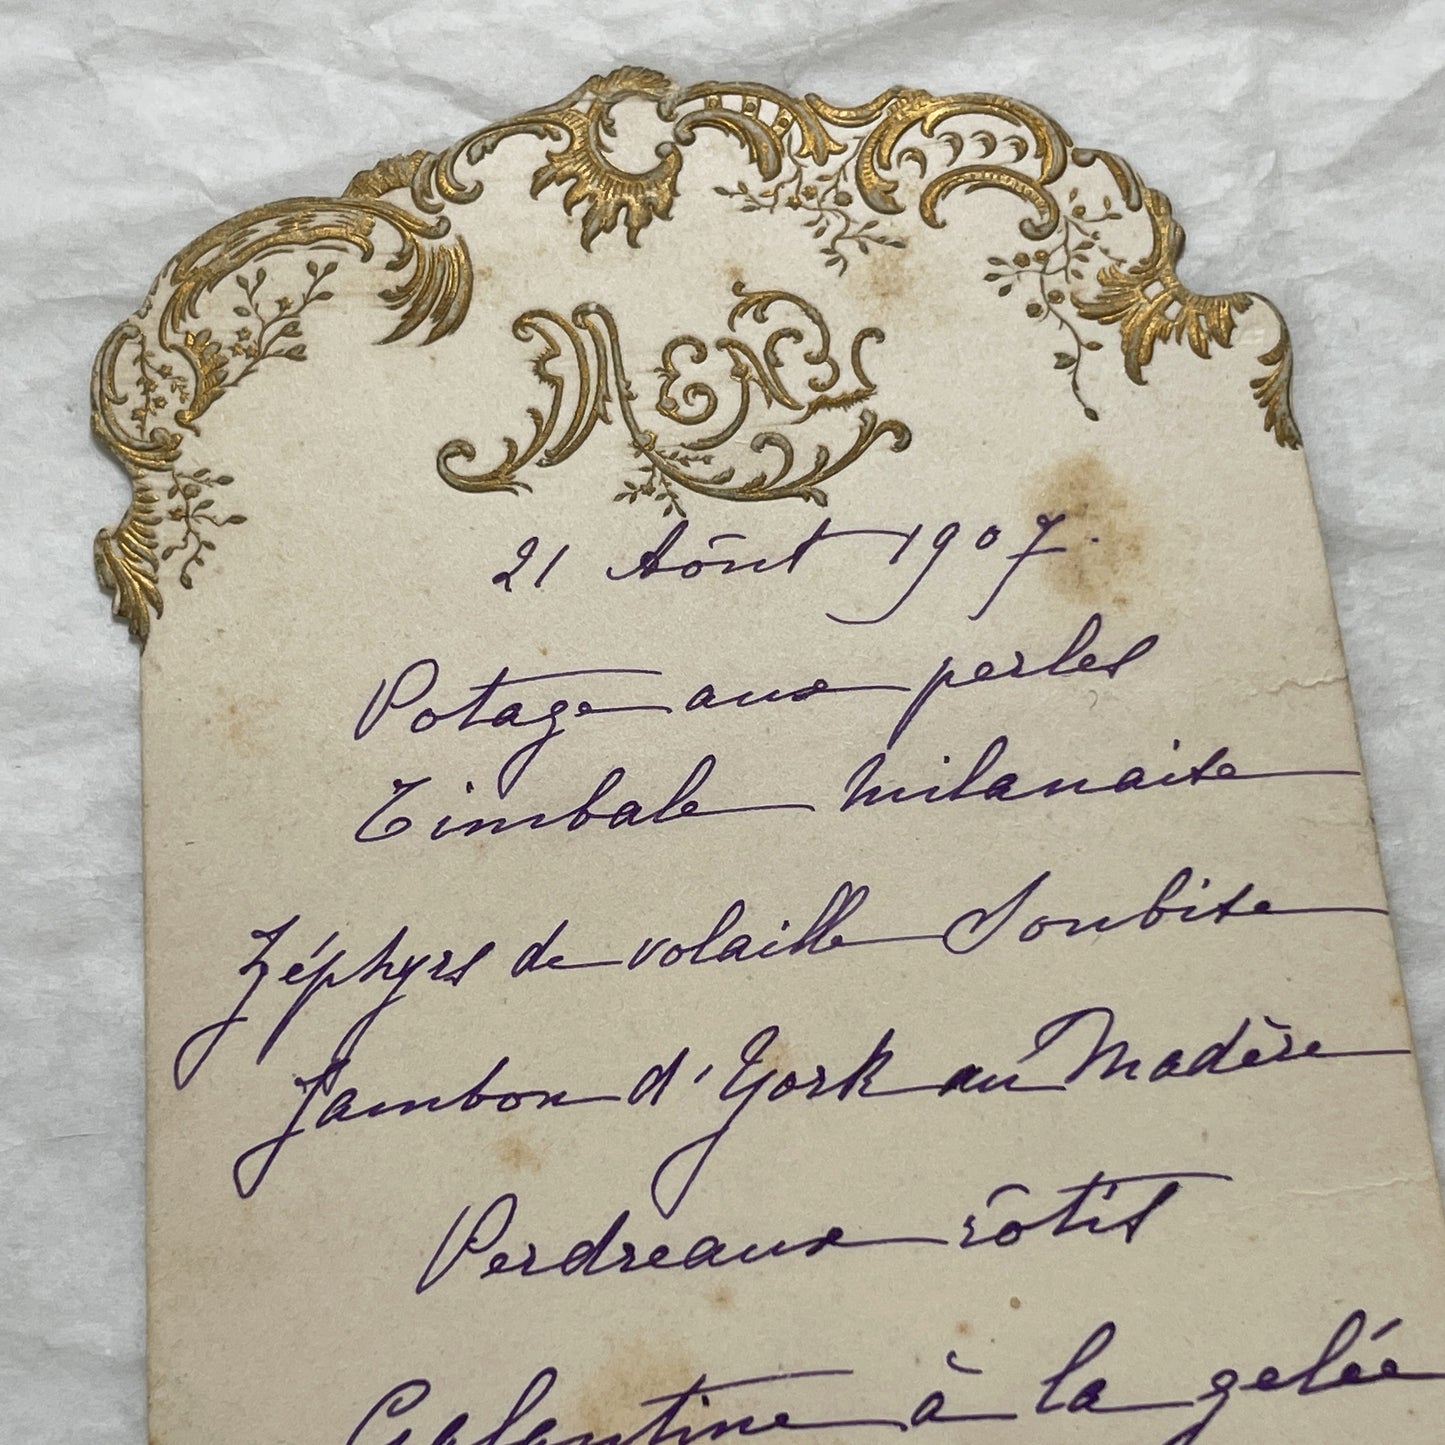 Menu
21 Août 1907.
Potage aux perles
Timbale milanaise
Zéphyrs de volaille Soubise
Jambon d'York au Madère
Perdreaux rôtis
Galantine à la gelée